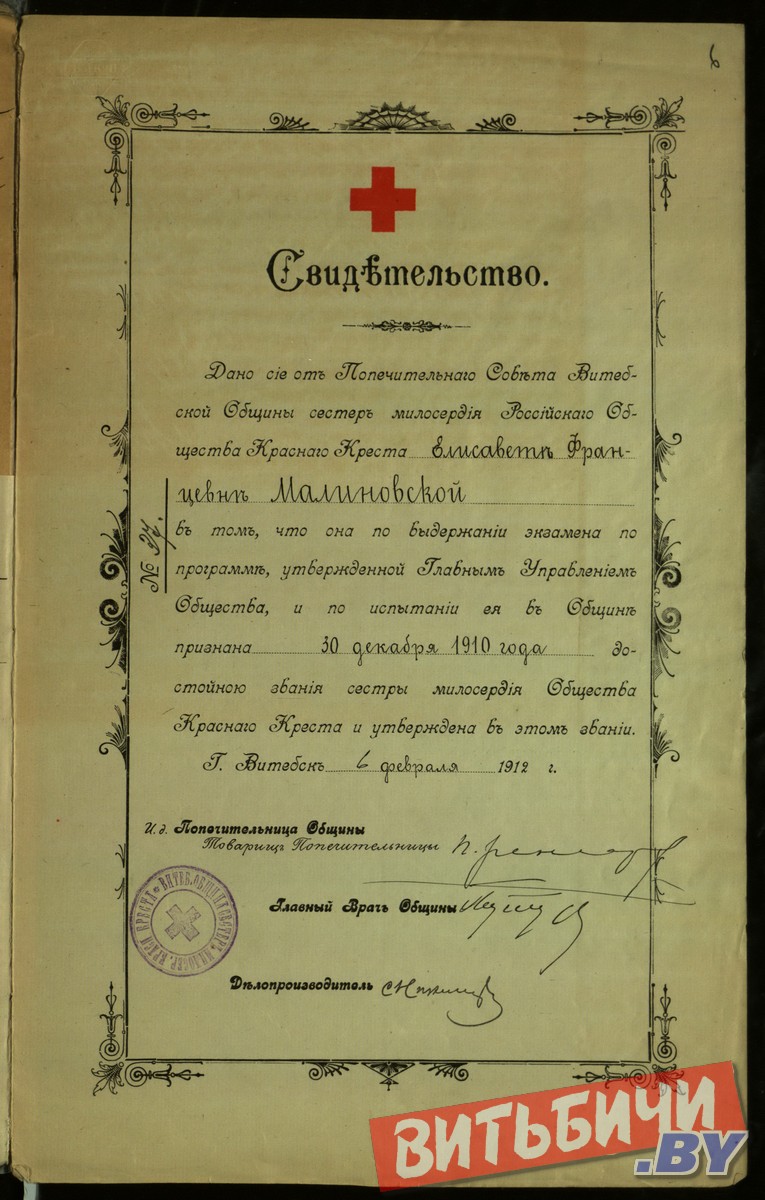 6
Свидѣтельство.
Дано сіе отъ Попечительнаго Совѣта Витеб-
ской Общины сестеръ милосердія Россійскаго Об-
щества Краснаго Креста Елисаветѣ Фран-
цевнѣ Малиновской
въ томъ, что она по выдержаніи экзамена по
программѣ, утвержденной Главнымъ Управленіемъ
Общества, и по испытаніи ея въ Общинѣ
признана 30 декабря 1910 года до-
стойною званія сестры милосердія Общества
Краснаго Креста и утверждена въ этомъ званіи.
Г. Витебскъ 6 февраля 1912 г.
№ 27.
И. д. Попечительница Общины
Товарищъ Попечительницы
Главный Врачъ Общины
Дѣлопроизводитель
ВИТЕБ. ОБЩИНА СЕСТЕРЪ МИЛОСЕР. КРАСН. КРЕСТА
ВИТЬБИЧИ
.BY